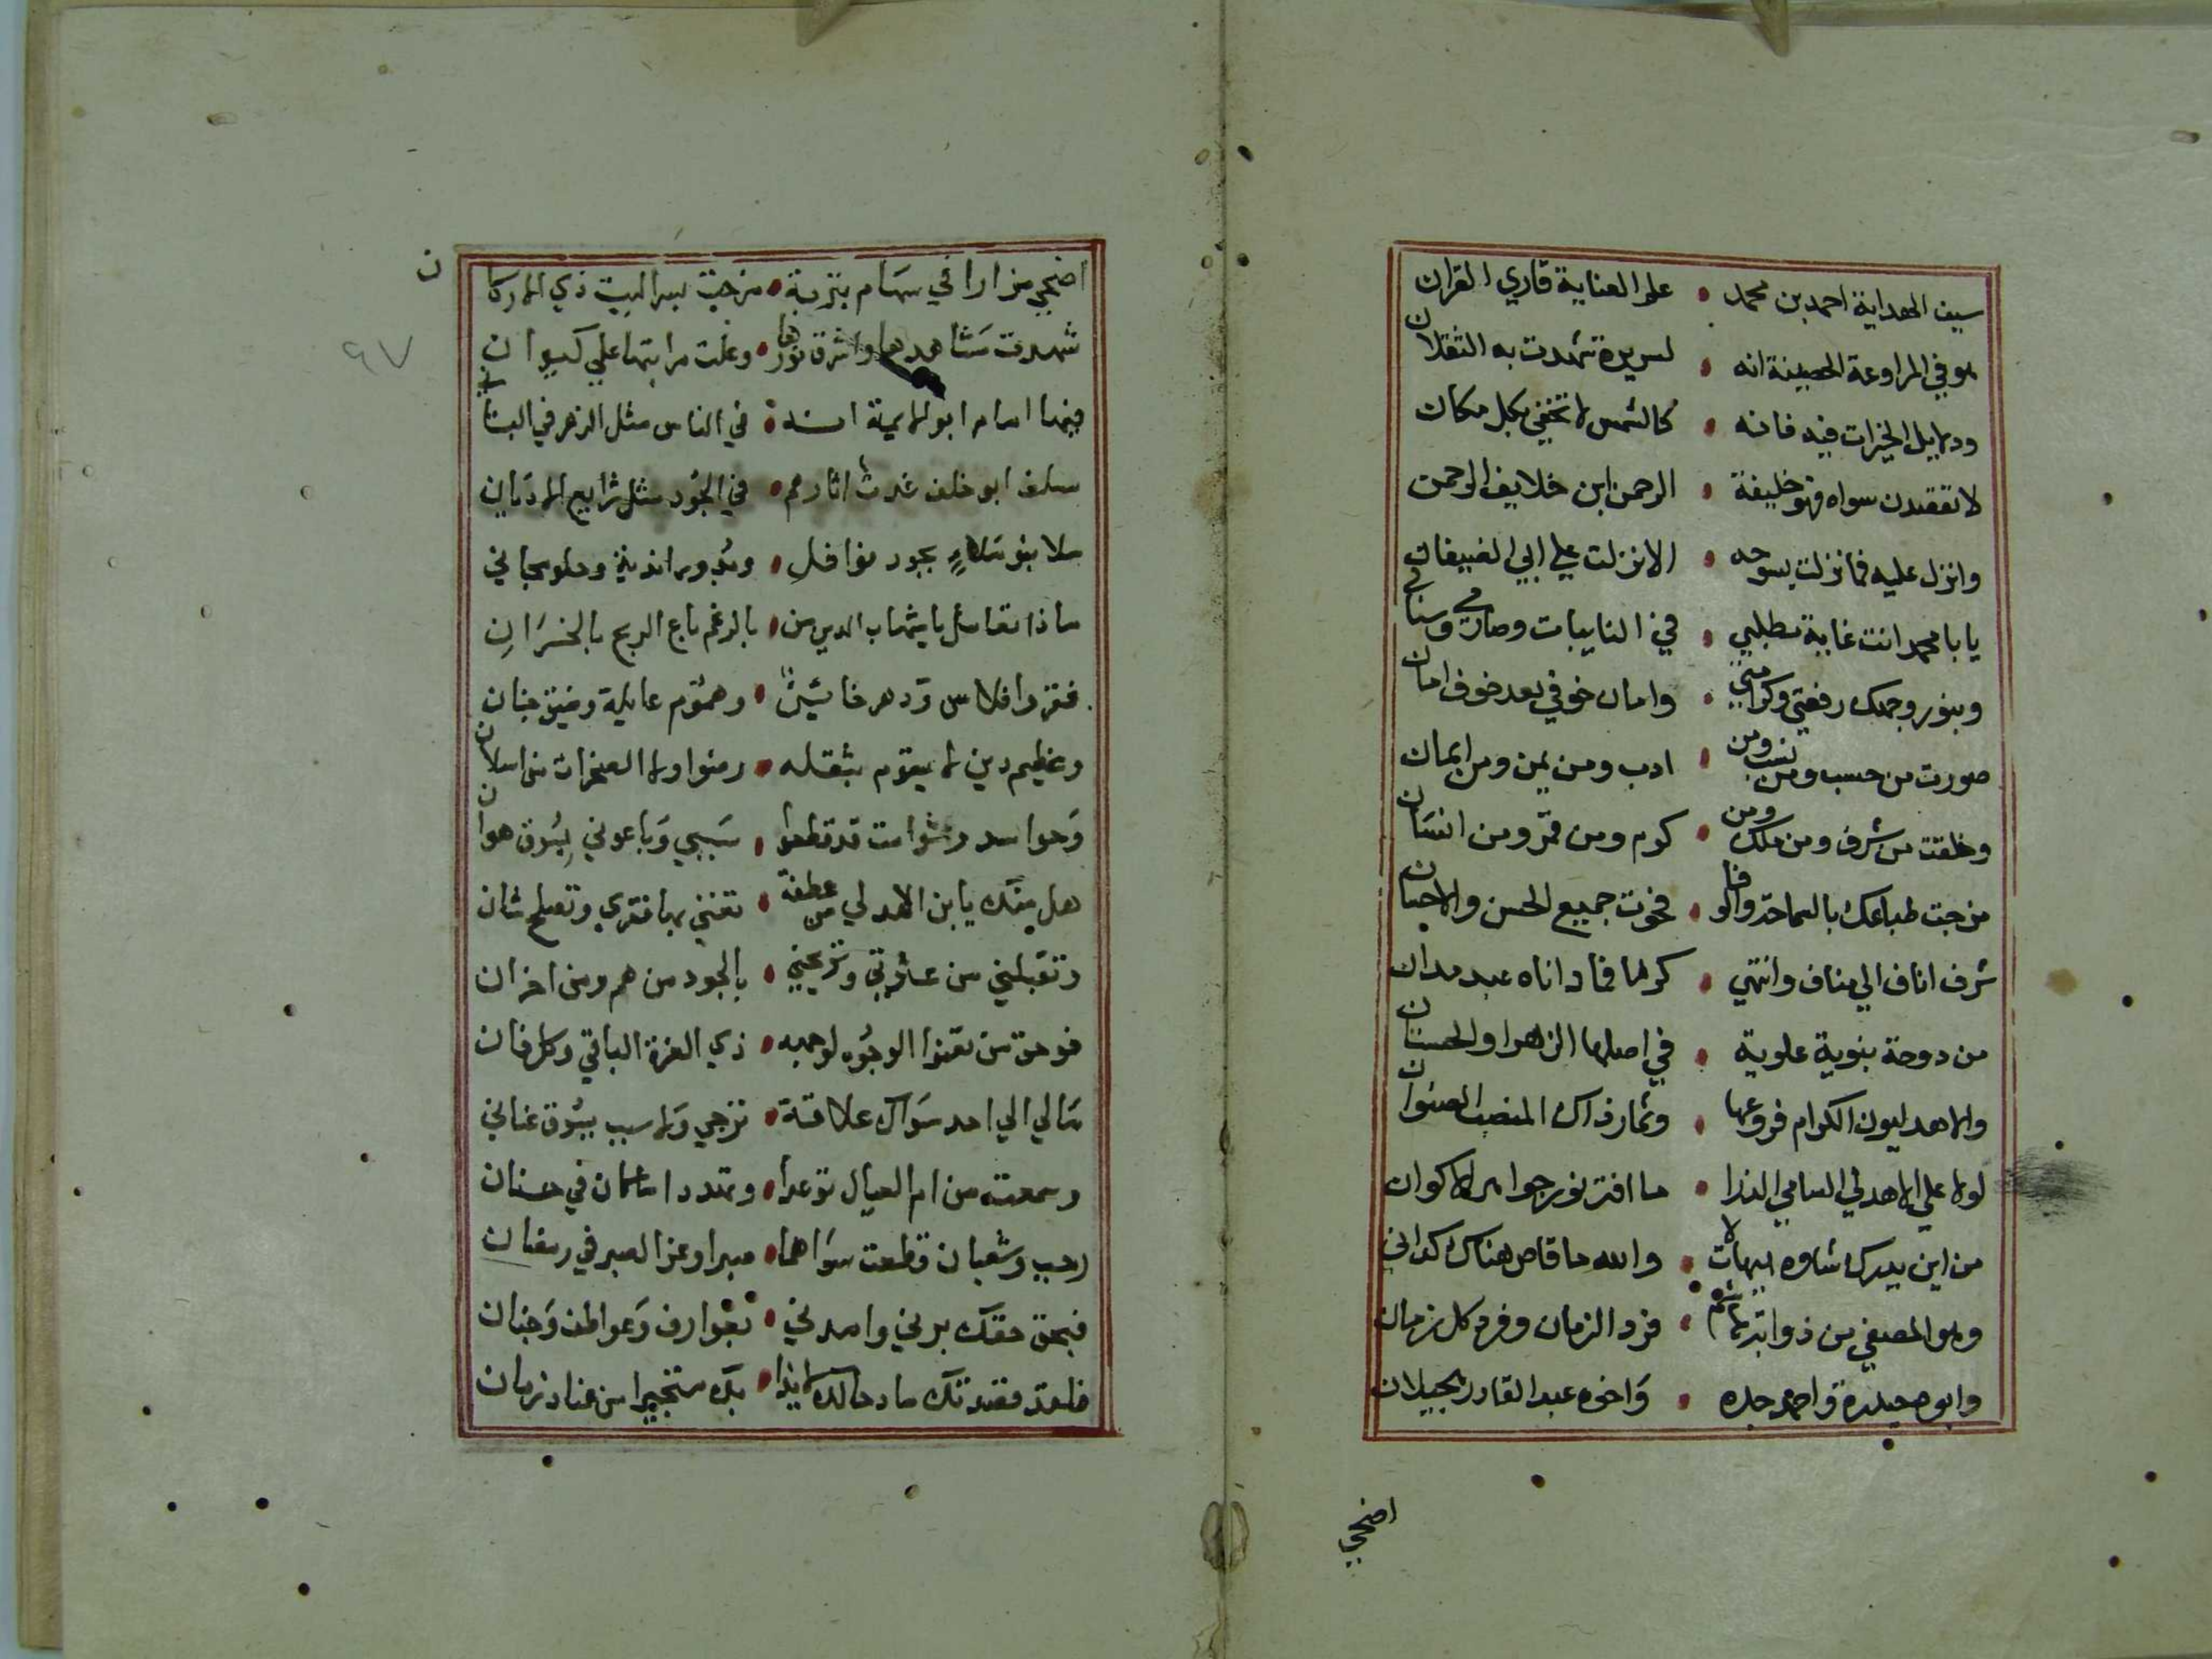 سيف الهداية احمد بن محمد • علم العناية قاري القران
هو في المراوعة الحصينة انه • لسريرة شهدت به الثقلان
ودلايل الخيرات فيه فانه • كالشمس لا تخفى بكل مكان
لا تقصدن سواه فهو خليفة • الرحمن ابن خلايف الرحمن
وانزل عليه فما نزلت بسوحه • الا نزلت على ابي الضيفان
يا با محمد انت غاية مطلبي • في النايبات وصارمي وسناني
وبنور وجهك رفعتي وكرامتي • وامان خوفي بعد خوف امان
صورت من حسب ومن نسب ومن • ادب ومن يمن ومن ايمان
وخلقت من شرف ومن ملك ومن • كرم ومن قمر ومن انسان
مزجت طباعك بالسماحة والوفا • فحوت جميع الحسن والاحسان
شرف اناف الى مناف وانتهي • كرما فما داناه عبد مدان
من دوحة نبوية علوية • في اصلها الزهرا والحسنان
والاهدليون الكرام فروعها • وثمار ذاك المنصب الصنوان
لولا علي الاهدلي السامي الذرا • ما افتر نور جواهر الاكوان
من اين يدرك شاوه هيهات لا • والله ما قاص هناك كداني
وهو المصفى من ذوابة هاشم • فرد الزمان وفرد كل زمان
وابوه حيدرة واحمد جده • واخوه عبد القادر الجيلان
اضحى
اضحي مزارا في سهام بتربة • مزجت بسر البيت ذي الاركان
شهدت مشاهدها واشرق نورها • وعلت مراتبها علي كيوان
فيها امام ابو الايمة انه • في الناس مثل الزهر في البستان
سلف ابو خلف غدت اثارهم • في الجود مثل
ماذا تعامل يا شهاب الدين من • بالرغم باع الربح بالخسران
فقر وافلاس ودهر خاين • وهموم عايلة وضيق جنان
وعظيم دين لا يقوم بثقله • رضوا ولا الصخرات من اسلان
وحواسد وشوامت قد قطعوا • سببي وباعوني بسوق هوان
هل منك يا بن الاهدلي من عطفة • تغني بها فقري وتصلح شان
وتقيلني من عثرتي وتريحني • بالجود من هم ومن احزان
فوحق من تعنوا الوجوه لوجهه • ذي العزة الباقي وكل فان
مالي الي احد سواك علاقة • ترجي ولا سبب يسوق عناني
وسمعت من ام العيال توعدا • وتمددا
رجب وشعبان قطعت سواهما • صبرا وعز الصبر في رمضان
فبحق حقك برني وامدني • بعوارف وعواطف وحنان
فلقد قصدتك مادحا لك لايذا • بك مستجيرا من عناد زمان
٩٧